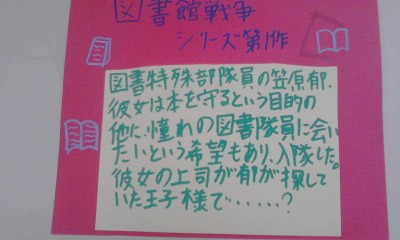 図書館戦争
シリーズ第1作
図書特殊部隊員の笠原郁.
彼女は本を守るという目的の
他に、憧れの図書隊員に会い
たいという希望もあり、入隊した。
彼女の上司が郁が探して
いた王子様で……?